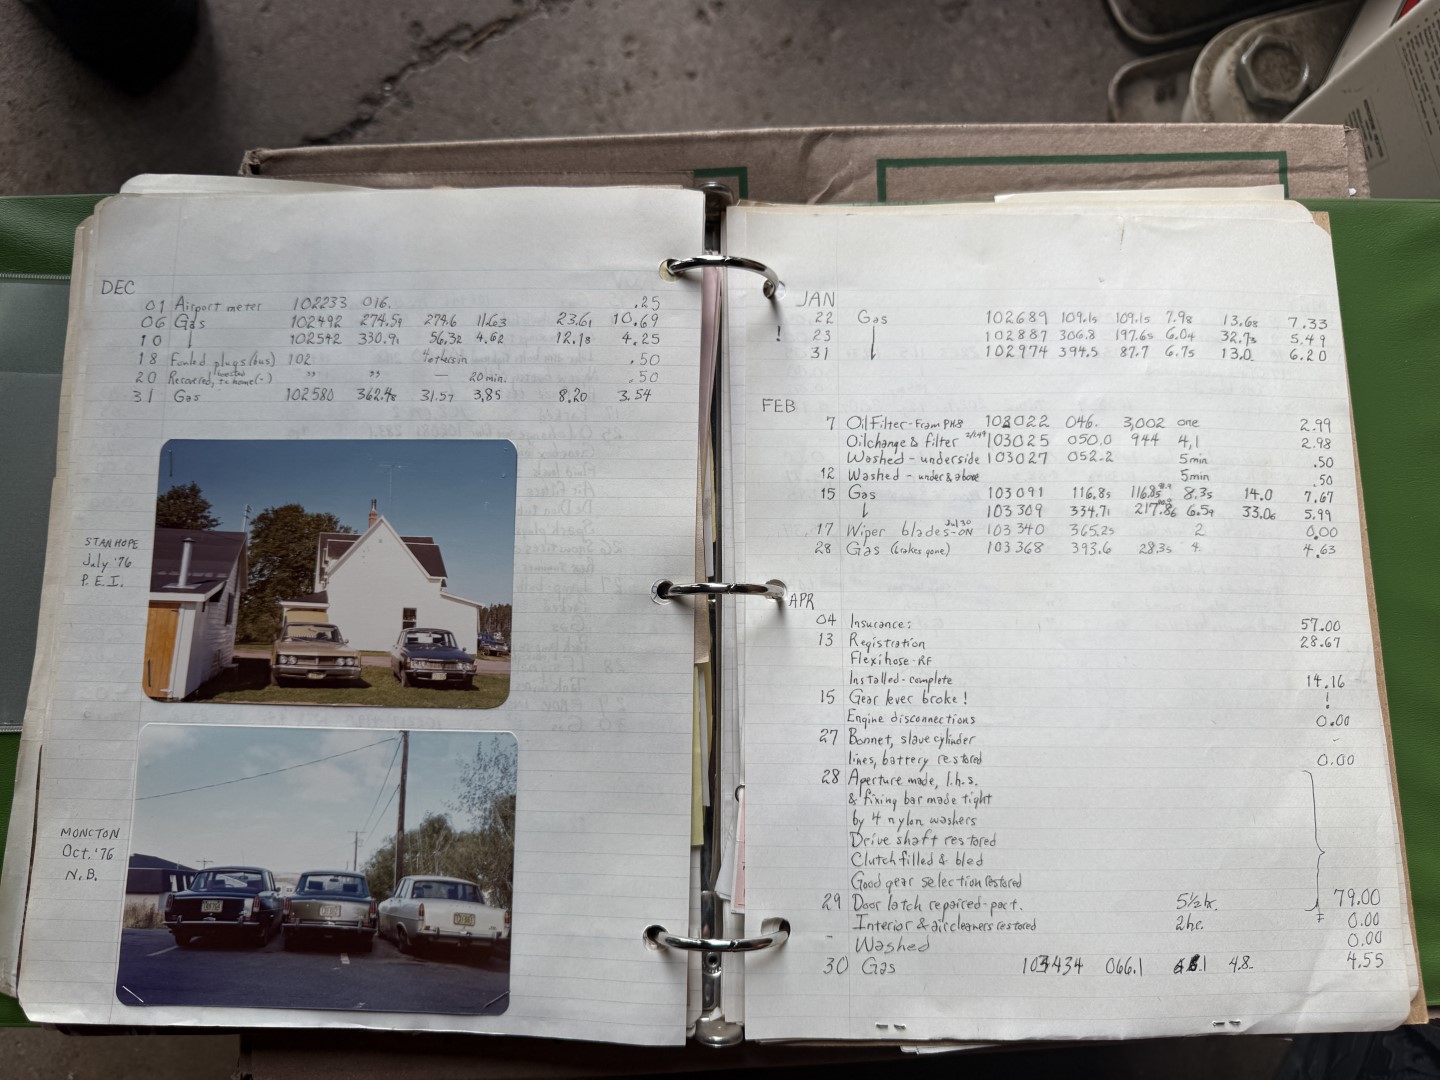 DEC
01 Airport meter 102233 016. .25
06 Gas 102492 274.59 274.6 11.63 23.61 10.69
10 ↓ 102542 330.91 56.32 4.62 12.18 4.25
18 Fouled plugs (bus) 102 .50
20 Recovered, to home (·) " " — 20 min. .50
31 Gas 102580 362.48 31.57 3.85 8.20 3.54
STANHOPE
July '76
P.E.I.
MONCTON
Oct. '76
N.B.
JAN
22 Gas 102689 109.15 109.15 7.98 13.68 7.33
! 23 102887 306.8 197.65 6.04 32.73 5.49
31 ↓ 102974 394.5 87.7 6.75 13.0 6.20
FEB
7 Oil Filter - Fram PH8 103022 046. 3,002 one 2.99
Oilchange & filter 103025 050.0 944 4,1 2.98
Washed - underside 103027 052.2 5min .50
12 Washed - under & above 5min .50
15 Gas 103091 116.85 116.85 8.35 14.0 7.67
↓ 103309 334.71 217.86 6.59 33.06 5.99
17 Wiper blades - ON Jul 30 103340 365.25 2 0.00
28 Gas (brakes gone) 103368 393.6 28.35 4. 4.63
APR
04 Insurance: 57.00
13 Registration 28.67
Flexihose - RF
Installed - complete 14.16
15 Gear lever broke! !
Engine disconnections 0.00
27 Bonnet, slave cylinder -
lines, battery restored 0.00
28 Aperture made, l.h.s.
& fixing bar made tight
by 4 nylon washers
Drive shaft restored
Clutch filled & bled
Good gear selection restored
29 Door latch repaired - part. 5½ hr. 79.00
Interior & aircleaners restored 2hr. 0.00
- Washed 0.00
30 Gas 103434 066.1 4.8 4.55